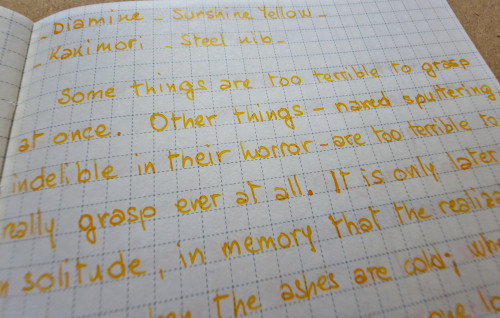 - Diamine - Sunshine Yellow -
- Kakimori - Steel nib -
Some things are too terrible to grasp
at once. Other things - naked sputtering
indelible in their horror - are too terrible to
really grasp ever at all. It is only later
in solitude, in memory that the realiza
the ashes are cold;